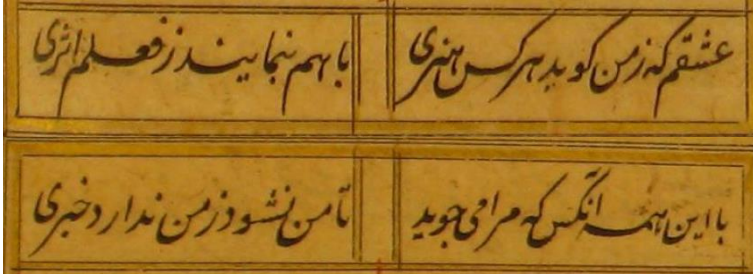 عشقم که ز من گوید هر کس هنری
با هم ننمایند ز فعلم اثری
با این همه آنکس که مرا می جوید
تا من نشود ز من ندارد خبری